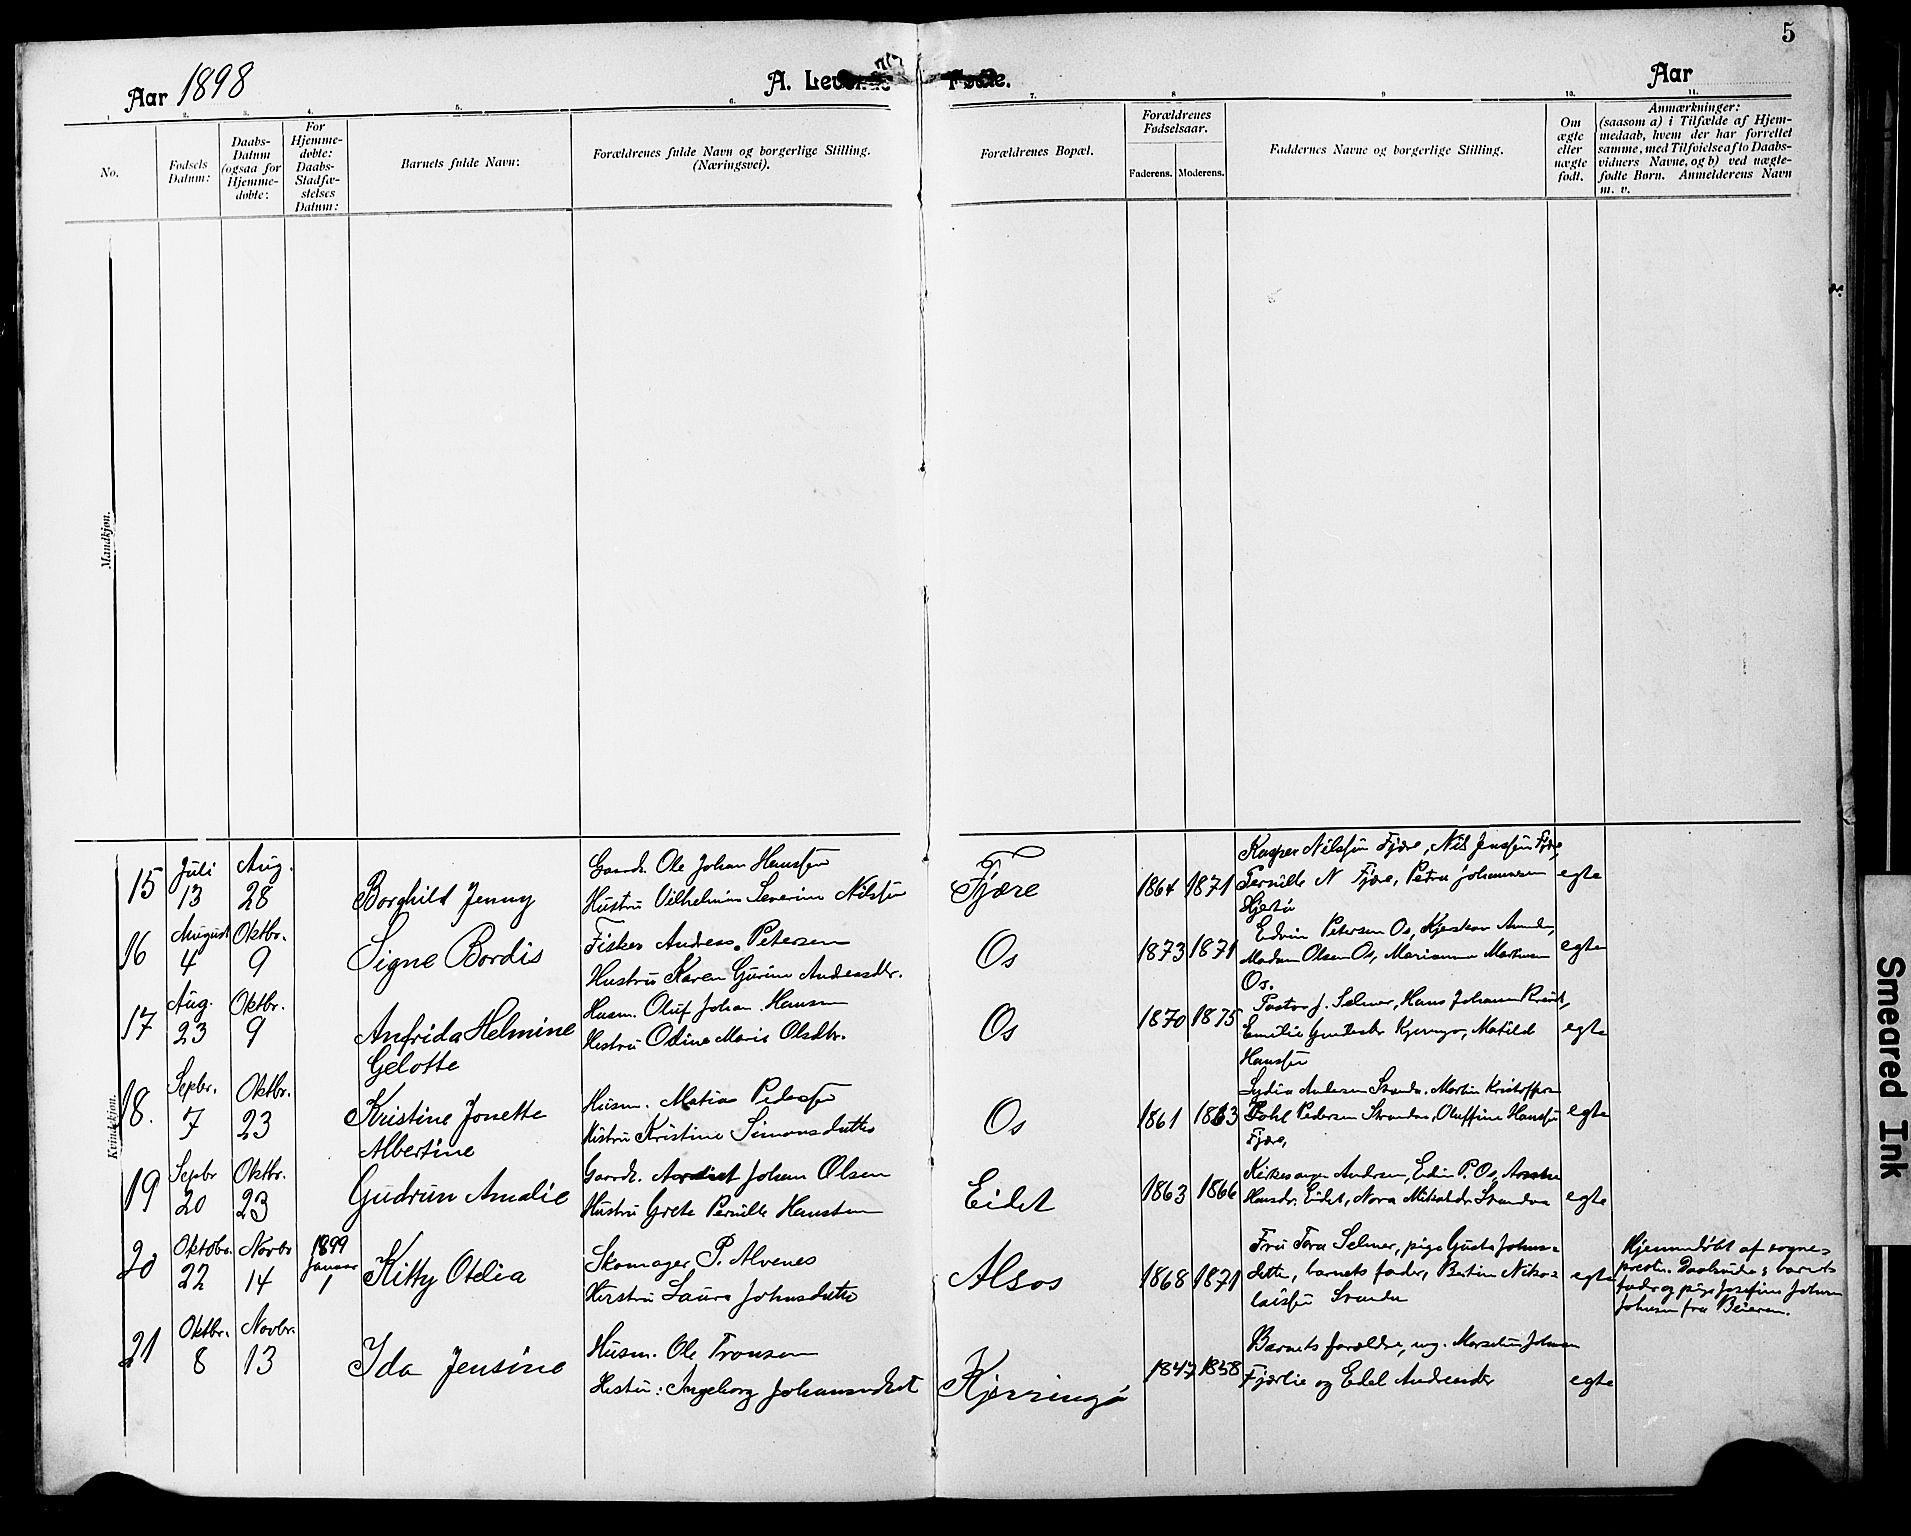 5
Aar 1898
A. Levende Fødte.
Aar
1. 2. 3. 4. 5. 6. 7. 8 9 10. 11.
No.
Fødsels Datum:
Daabs-Datum (ogsaa for Hjemmedøbte:
For Hjemmedøbte: Daabs-Stadfæstelses Datum:
Barnets fulde Navn:
Forældrenes fulde Navn og borgerlige Stilling. (Næringsvei).
Forældrenes Bopæl.
Forældrenes Fødselsaar.
Faderens. Moderens.
Faddernes Navne og borgerlige Stilling.
Om ægte eller uægte født.
Anmærkninger: (saasom a) i Tilfælde af Hjemmedaab, hvem der har forrettet samme, med Tilføielse af to Daabsvidners Navne, og b) ved uægtefødte Børn. Anmelderens Navn m. v.
Mandkjøn.
Kvindekjøn.
15 Juli 13 Aug. 28
Borghild Jenny
Gaardr. Ole Johan Hanssen
Hustru Vilhelmine Severine Nilssen
Fjære
1864 1871
Kasper Nilssen Fjære, Nils Jenssen Fjære,
Pernille N Fjære, Petra Johannesen
egte
16 August 4 Oktbr. 9
Signe Bordis
Fisker Andreas Petersen
Hustru Karen Gurine Andreasdtr.
Os
1873 1871
Edvin Petersen Os,
Madam Olsen Os, Marianne
Os.
egte
17 Aug. 23 Oktbr. 9
Anfrida Helmine
Gelotte
Husm. Oluf Johan Hansen
Hustru Odine Marie Olsdtr.
Os
1870 1875
Pastor J. Selmer, Hans Johan
Emilie Kjerringø, Matilde
Hanssen
egte
18. Sepbr. 7 Oktbr. 23
Kristine Jonette
Albertine
Husm. Matias Pederssen
Hustru Kristine Simonsdatter
Os
1861 1863
Lydia Andersen Stranda, Martin Kristoffersen
Pedersen Stranden, Oluffine Hanssen
Fjære,
egte
19 Sepbr 20 Oktbr. 23
Gudrun Amalie
Gaardr. Johan Olsen
Hustru Grete Pernille Hansten
Eidet
1863 1866
Kirkesanger Andersen, Edvin P. Os,
Hansdr. Eidet, Nora
egte
20 Oktobr. 22 Novbr 14 1899 Januar 1
Kitty Otelia
Skomager P. Alvenes
Hustru Laura Johnsdatter
Alsos
1868 1871
Fru Tora Selmer, pige Gusta Johns=
datter, barnets fader, Bertin Niko=
laissen Stranda
egte
Hjemmedøbt af sogne=
presten. Daabsvidner: barnets
fader og pige Josefine Johan
Johnsen fra Beieren.
21 Oktbr. 8 Novbr. 13
Ida Jensine
Husm. Ole Tronsen
Hustru: Ingeborg Johansdtr
Kjerringø
1847 1858
Barnets forældre, ug.
Fjærlie og Edel Andreasdtr
egte
Smeared Ink